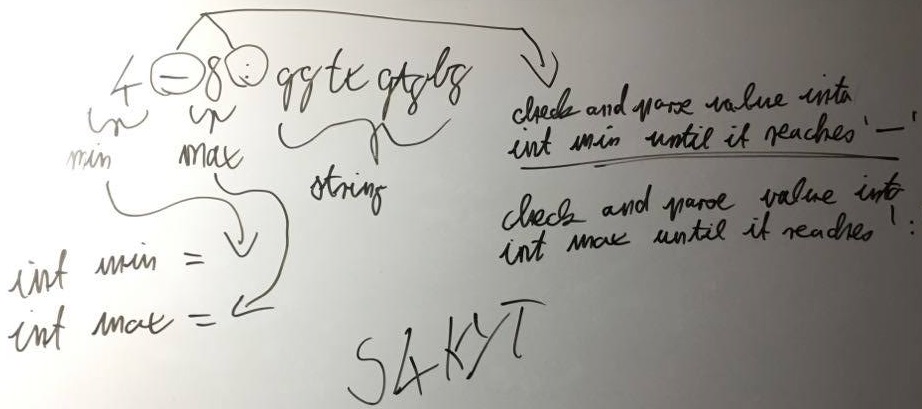 4 - 8 : qqtx qtqbq
min max
string
int min =
int max =
check and parse value into
int min until it reaches '-'
check and parse value into
int max until it reaches ':
S4KYT